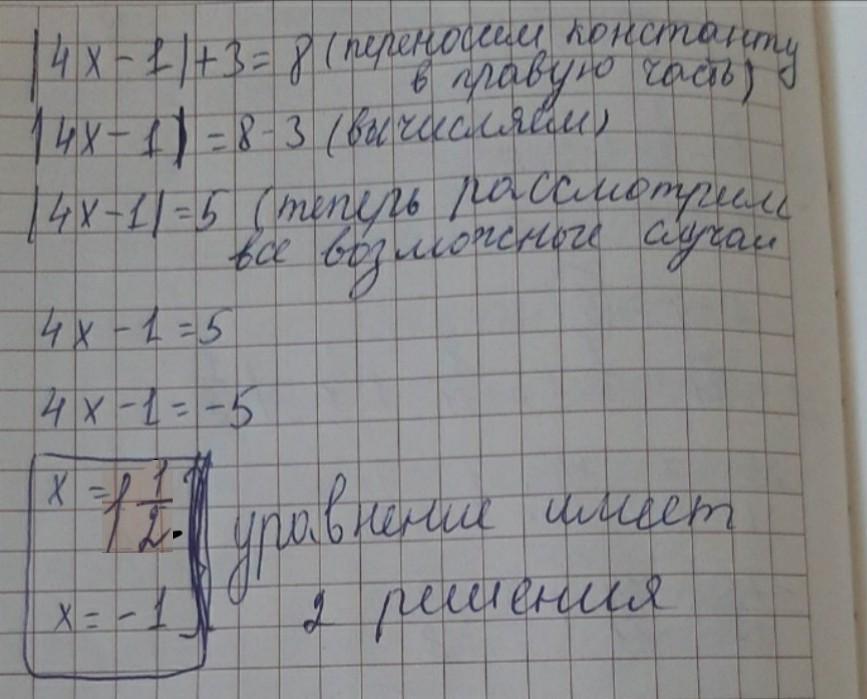 |4x-1|+3=8 (переносим константу
в правую часть)
|4x-1|=8-3 (вычисляем)
|4x-1|=5 (теперь рассмотрим
все возможные случаи
4x-1=5
4x-1=-5
x=1 1/2.
уравнение имеет
x=-1
2 решения